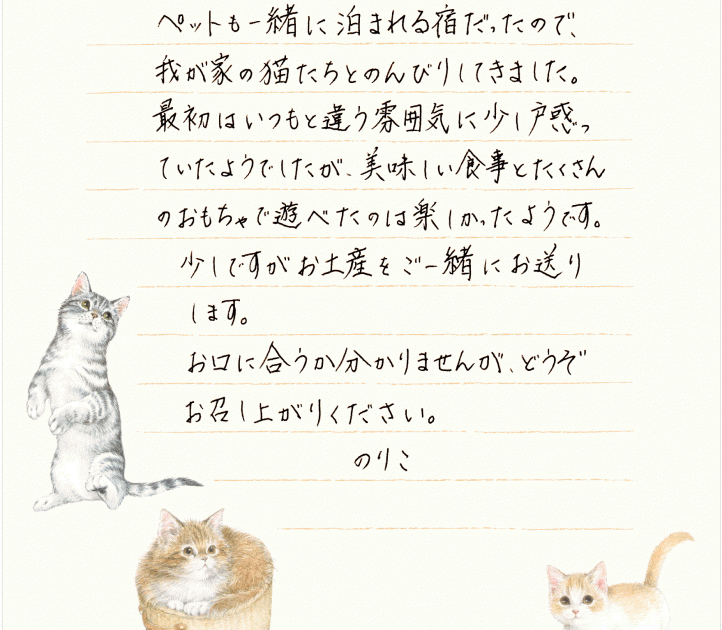 ペットも一緒に泊まれる宿だったので、
我が家の猫たちとのんびりしてきました。
最初はいつもと違う雰囲気に少し戸惑っ
ていたようでしたが、美味しい食事とたくさん
のおもちゃで遊べたのは楽しかったようです。
少しですがお土産をご一緒にお送り
します。
お口に合うか分かりませんが、どうぞ
お召し上がりください。
のりこ